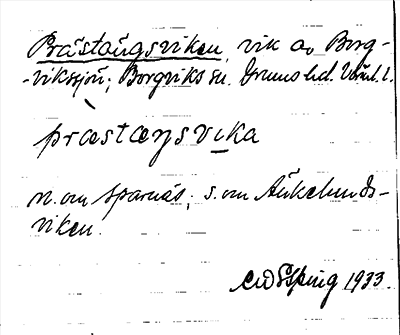 Prästängsviken, vik av Borg-
-vikssjön; Borgviks sn. Grums hd. Värml. l.
præstæŋsvika
n. om Sparnäs; s. om Änkelunds-
viken.
1933.